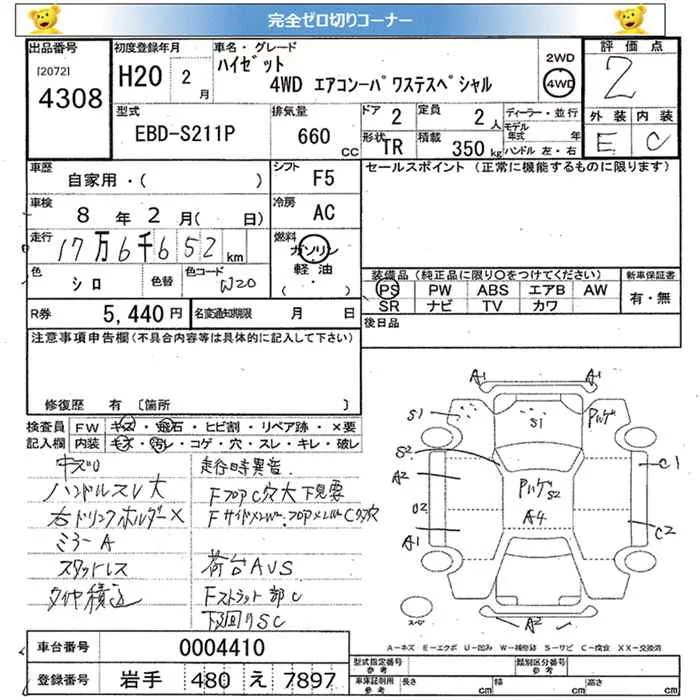 完全ゼロ切りコーナー
出品番号
[20721]
4308
初度登録年月
H20 2月
車名・グレード
ハイゼット
4WD エアコンーパワステスペシャル
2WD
4WD
評価点
2
外装 内装
E C
型式
EBD-S211P
排気量
660 CC
ドア 2
定員 2人
形状 TR
積載 350 kg
ディーラー・並行
モデル年式 年
ハンドル 左・右
車歴
自家用・( )
シフト F5
セールスポイント (正常に機能するものに限ります)
車検
8年2月( 日)
冷房 AC
走行
17万6千652km
燃料
ガソリン
軽油
( ・ )
色 シロ 色替
色コード W20
装備品 (純正品に限り○をつけてください)
新車保証書
PS PW ABS エアB AW
有・無
SR ナビ TV カワ
R券 5,440円
名変通知期限 月 日
後日品
注意事項申告欄(不具合内容等は具体的に記入して下さい)
修復歴 有 〔箇所
検査員記入欄
FW キズ・飛石・ヒビ割・リペア跡・×要
内装 キズ・汚レ・コゲ・穴・スレ・キレ・破レ
走行時異音
ハンドルスレ大
FフロアC穴大 下見要
右ドリンクホルダー×
ミラーA
スタッドレス
荷台AUS
タイヤ積込
Fストラット部C
下回りSC
A1 A1
S1 S1
S2 A2 U2 A1
S2
A4
C1
C2
A2
スペア
A-キズ E-エクボ U-凹み W-補修跡 S-サビ C-腐食 XX-交換済
車台番号 0004410
登録番号 岩手 480 え 7897
型式指定番号 参考
類別区分番号 参考
車庫証明用 参考
長さ cm 幅 cm 高さ cm